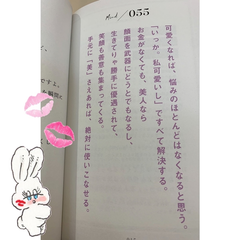 Mind / 055
可愛くなれば、悩みのほとんどはなくなると思う。
「いっか。私可愛いし」ですべて解決する。
お金がなくても、美人なら
顔面を武器にどうとでもなるし、
生きてりゃ勝手に優遇されて、
笑顔も善意も集まってくる。
手元に「美」さえあれば、絶対に使いこなせる。